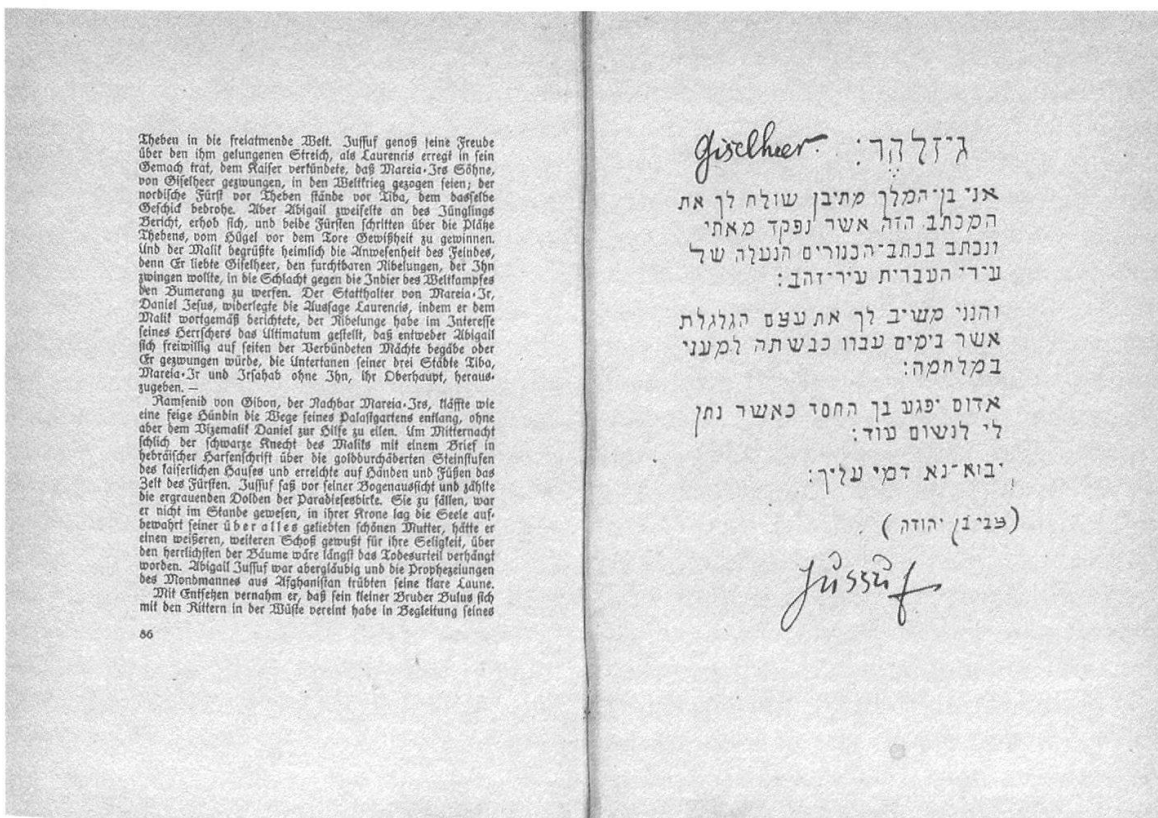 Theben in die freiatmende Welt. Jussuf genoß seine Freude
über den ihm gelungenen Streich, als Laurencis erregt in sein
Gemach trat, dem Kaiser verkündete, daß Mareia-Irs Söhne,
von Giselheer gezwungen, in den Weltkrieg gezogen seien; der
nordische Fürst vor Theben stände vor Tiba, dem dasselbe
Geschick bedrohe. Aber Abigail zweifelte an des Jünglings
Bericht, erhob sich, und beide Fürsten schritten über die Plätze
Thebens, vom Hügel vor dem Tore Gewißheit zu gewinnen.
Und der Malik begrüßte heimlich die Anwesenheit des Feindes,
denn Er liebte Giselheer, den furchtbaren Nibelungen, der Ihn
zwingen wollte, in die Schlacht gegen die Indier des Weltkampfes
den Bumerang zu werfen. Der Statthalter von Mareia-Ir,
Daniel Jesus, widerlegte die Aussage Laurencis, indem er dem
Malik wortgemäß berichtete, der Nibelunge habe im Interesse
seines Herrschers das Ultimatum gestellt, daß entweder Abigail
sich freiwillig auf seiten der Verbündeten Mächte begäbe oder
Er gezwungen würde, die Untertanen seiner drei Städte Tiba,
Mareia-Ir und Irsahab ohne Ihn, ihr Oberhaupt, heraus-
zugeben. —
Ramsenid von Gibon, der Nachbar Mareia-Irs, kläffte wie
eine feige Hündin die Wege seines Palastgartens entlang, ohne
aber dem Vizemalik Daniel zur Hilfe zu eilen. Um Mitternacht
schlich der schwarze Knecht des Maliks mit einem Brief in
hebräischer Harfenschrift über die goldburchäderten Steinstufen
des kaiserlichen Hauses und erreichte auf Händen und Füßen das
Zelt des Fürsten. Jussuf saß vor seiner Bogenaussicht und zählte
die ergrauenden Dolden der Paradiesesbirke. Sie zu fällen, war
er nicht im Stande gewesen, in ihrer Krone lag die Seele auf-
bewahrt seiner über alles geliebten schönen Mutter, hätte er
einen weißeren, weiteren Schoß gewußt für ihre Seligkeit, über
den herrlichsten der Bäume wäre längst das Todesurteil verhängt
worden. Abigail Jussuf war abergläubig und die Prophezeiungen
des Mondmannes aus Afghanistan trübten seine klare Laune.
Mit Entsetzen vernahm er, daß sein kleiner Bruder Bulus sich
mit den Rittern in der Wüste vereint habe in Begleitung seines
86
Giselheer. גיזלהֶר:
אני בן־המלך מתיבן שולח לך את
המכתב הזה אשר נפקד מאתי
ונכתב בכתב־הכנורים הנעלה של
עירי העברית עיר־זהב:
והנני משיב לך את עצם הגלגלת
אשר בימים עברו כבשתה למעני
במלחמה:
אדום יפגע בך החסד כאשר נתן
לי לנשום עוד:
יבוא־נא דמי עליך:
(צבי בן יהודה)
Jussuf